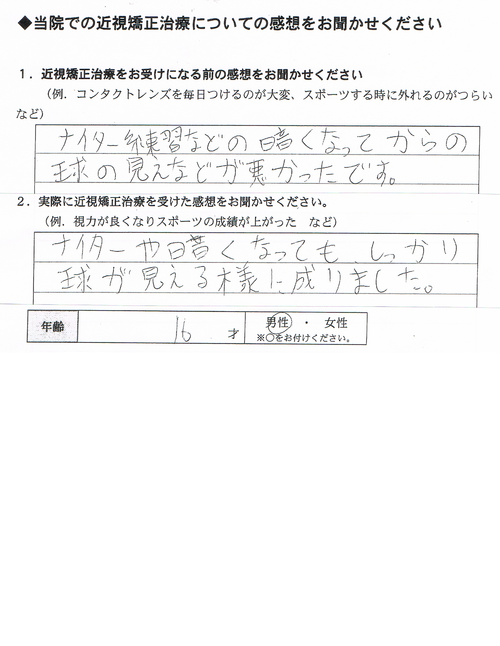 ◆当院での近視矯正治療についての感想をお聞かせください
１．近視矯正治療をお受けになる前の感想をお聞かせください
（例．コンタクトレンズを毎日つけるのが大変、スポーツする時に外れるのがつらい
など）
ナイター練習などの暗くなってからの
球の見えなどが悪かったです。
２．実際に近視矯正治療を受けた感想をお聞かせください。
（例．視力が良くなりスポーツの成績が上がった　など）
ナイターや暗くなっても、しっかり
球が見える様に成りました。
年齢　16　才　男性　・　女性
※〇をお付けください。